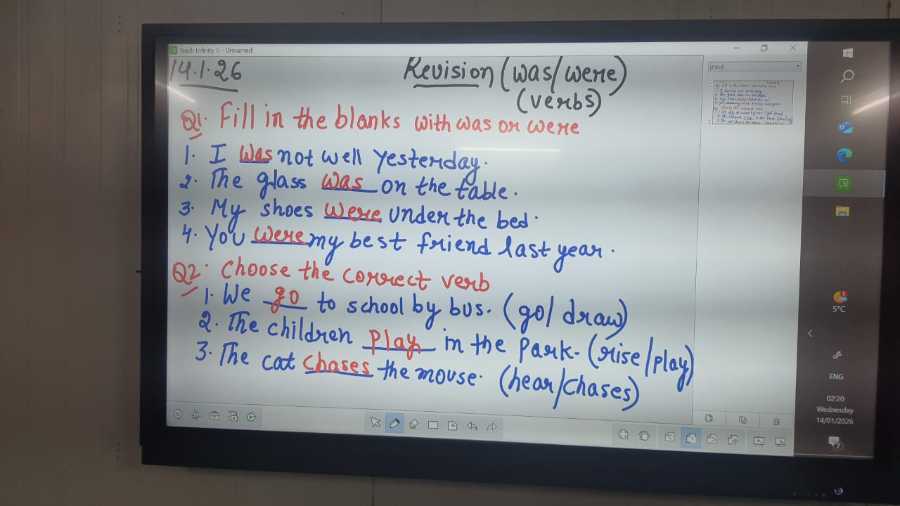 Teach Infinity 5 - Unnamed
14.1.26
Revision (was/were)
(verbs)
Q1. Fill in the blanks with was or were
1. I was not well yesterday.
2. The glass was on the table.
3. My shoes were under the bed.
4. You were my best friend last year.
Q2. Choose the correct verb
1. We go to school by bus. (go/draw)
2. The children play in the park. (rise/play)
3. The cat chases the mouse. (hear/chases)
5°C
ENG
02:20
Wednesday
14/01/2026